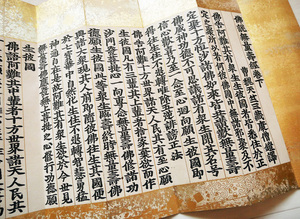 佛說無量壽經卷下
曹魏天竺三藏康僧鎧譯
佛告阿難其有眾生生彼國者皆悉住於正
定之聚所以者何彼佛國中無諸邪聚及不
定聚十方恒沙諸佛如來皆共讚歎無量壽
佛威神功德不可思議諸有眾生聞其名號
信心歡喜乃至一念至心迴向願生彼國即
得往生住不退轉唯除五逆誹謗正法
佛告阿難十方世界諸天人民其有至心願
生彼國凡有三輩其上輩者捨家棄欲而作
沙門發菩提心一向專念無量壽佛修諸功
德願生彼國此等眾生臨壽終時無量壽佛
與諸大眾現其人前即隨彼佛往生其國便
於七寶華中自然化生住不退轉智慧勇猛
神通自在是故阿難其有眾生欲於今世見
無量壽佛應發無上菩提之心修行功德願
生彼國
佛語阿難其中輩者十方世界諸天人民其